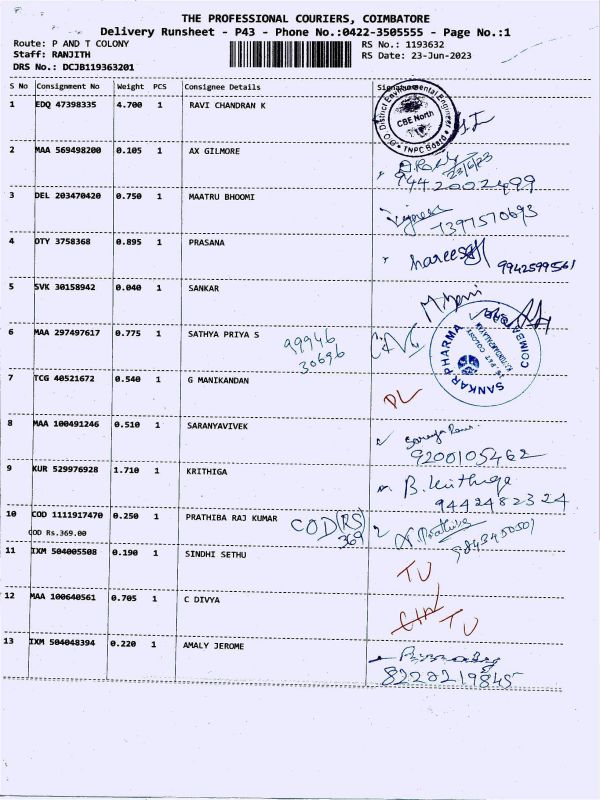 THE PROFESSIONAL COURIERS, COIMBATORE
Delivery Runsheet - P43 - Phone No.:0422-3505555 - Page No.:1
Route: P AND T COLONY RS No.: 1193632
Staff: RANJITH RS Date: 23-Jun-2023
DRS No.: DCJB119363201
S No Consignment No Weight PCS Consignee Details
1 EDQ 47398335 4.700 1 RAVI CHANDRAN K
District Environmental Engineer
CBE North
TNPC Board
2 MAA 569498200 0.105 1 AX GILMORE
23/6/23
9442002499
3 DEL 203470420 0.750 1 MAATRU BHOOMI
7397570693
4 DTY 3758368 0.895 1 PRASANA
hareesh 9942599561
5 SVK 30158942 0.040 1 SANKAR
SANKAR PHARMA
COIMBA
6 MAA 297497617 0.775 1 SATHYA PRIYA S
99946
30696
7 TCG 40521672 0.540 1 G MANIKANDAN
DL
8 MAA 100491246 0.510 1 SARANYAVIVEK
9200105462
9 KUR 529976928 1.710 1 KRITHIGA
B. Krithiga
9442482324
10 COD 1111917470 0.250 1 PRATHIBA RAJ KUMAR COD (RS) Prathiba
COD Rs.369.00 369
11 IXM 504005508 0.190 1 SINDHI SETHU
TU
12 MAA 100640561 0.705 1 C DIVYA
TU
13 IXM 504048394 0.220 1 AMALY JEROME
8220219845